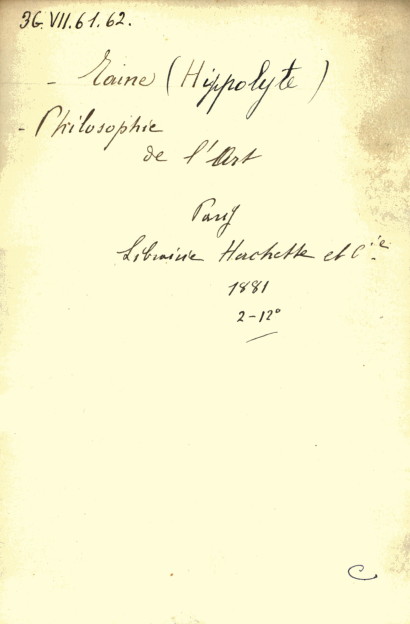 36.VII.61.62.
- Taine (Hippolyte)
- Philosophie
de l'Art
Paris
Librairie Hachette et Cie.
1881
2-12º
C